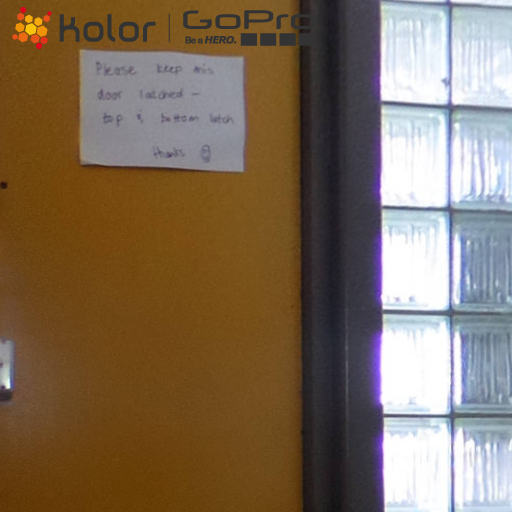 kolor GoPro
Be a HERO.
Please keep this
door latched –
top & bottom latch
thanks